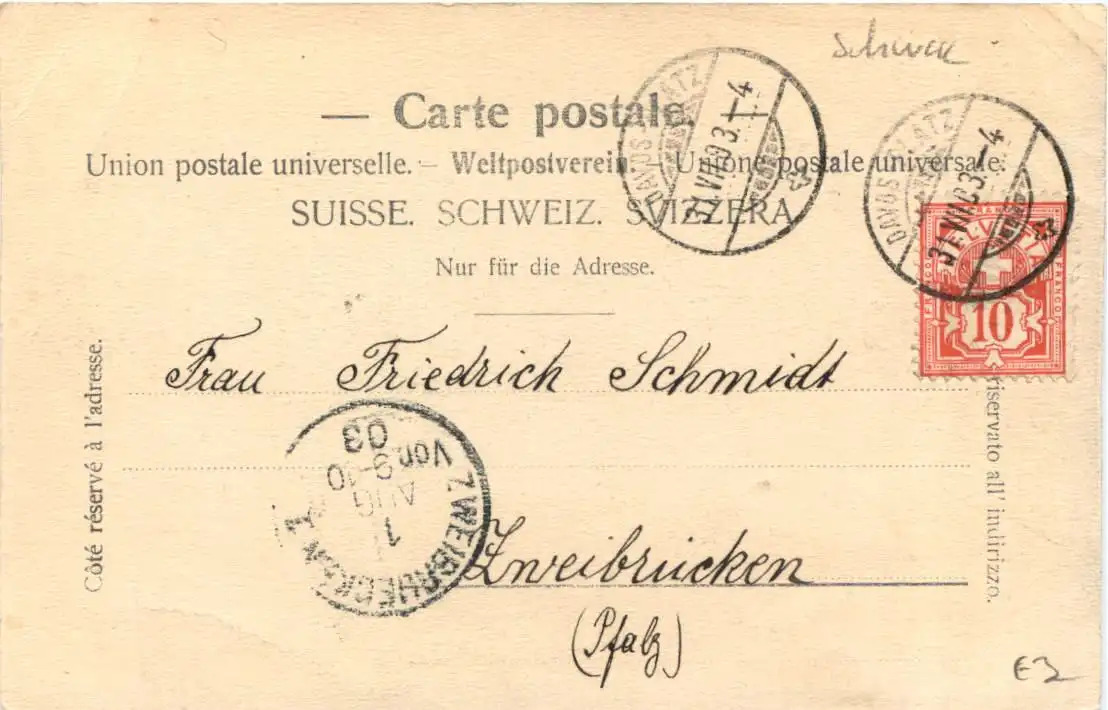 Schweiz
— Carte postale.
Union postale universelle. — Weltpostverein. — Unione postale universale.
SUISSE. SCHWEIZ. SVIZZERA
Nur für die Adresse.
DAVOS-PLATZ
31.VII.03.–4
DAVOS-PLATZ
31.VII.03.–4
HELVETIA
FRANCO
FRANCO
10
Côté réservé à l'adresse.
riservato all' indirizzo.
Frau Friedrich Schmidt
ZWEIBRUECKEN I
1
AUG
9-10
Vor.
03
Zweibrücken
(Pfalz)
€2